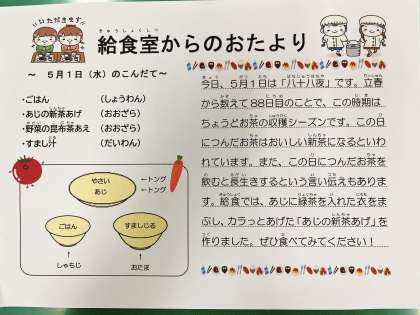 いただきます!!
給食室からのおたより
～ 5月1日（水）のこんだて～
・ごはん （しょうわん）
・あじの新茶あげ （おおざら）
・野菜の昆布茶あえ （おおざら）
・すまし汁 （だいわん）
やさい ←トング
あじ ←トング
ごはん
すましじる
しゃもじ
おたま
今日、5月1日は「八十八夜」です。立春
から数えて88日目のことで、この時期は
ちょうどお茶の収穫シーズンです。この日
につんだお茶はおいしい新茶になるといわ
れています。また、この日につんだお茶を
飲むと長生きするという言い伝えもありま
す。給食では、あじに緑茶を入れた衣をま
ぶし、カラっとあげた「あじの新茶あげ」を
作りました。ぜひ食べてみてください！